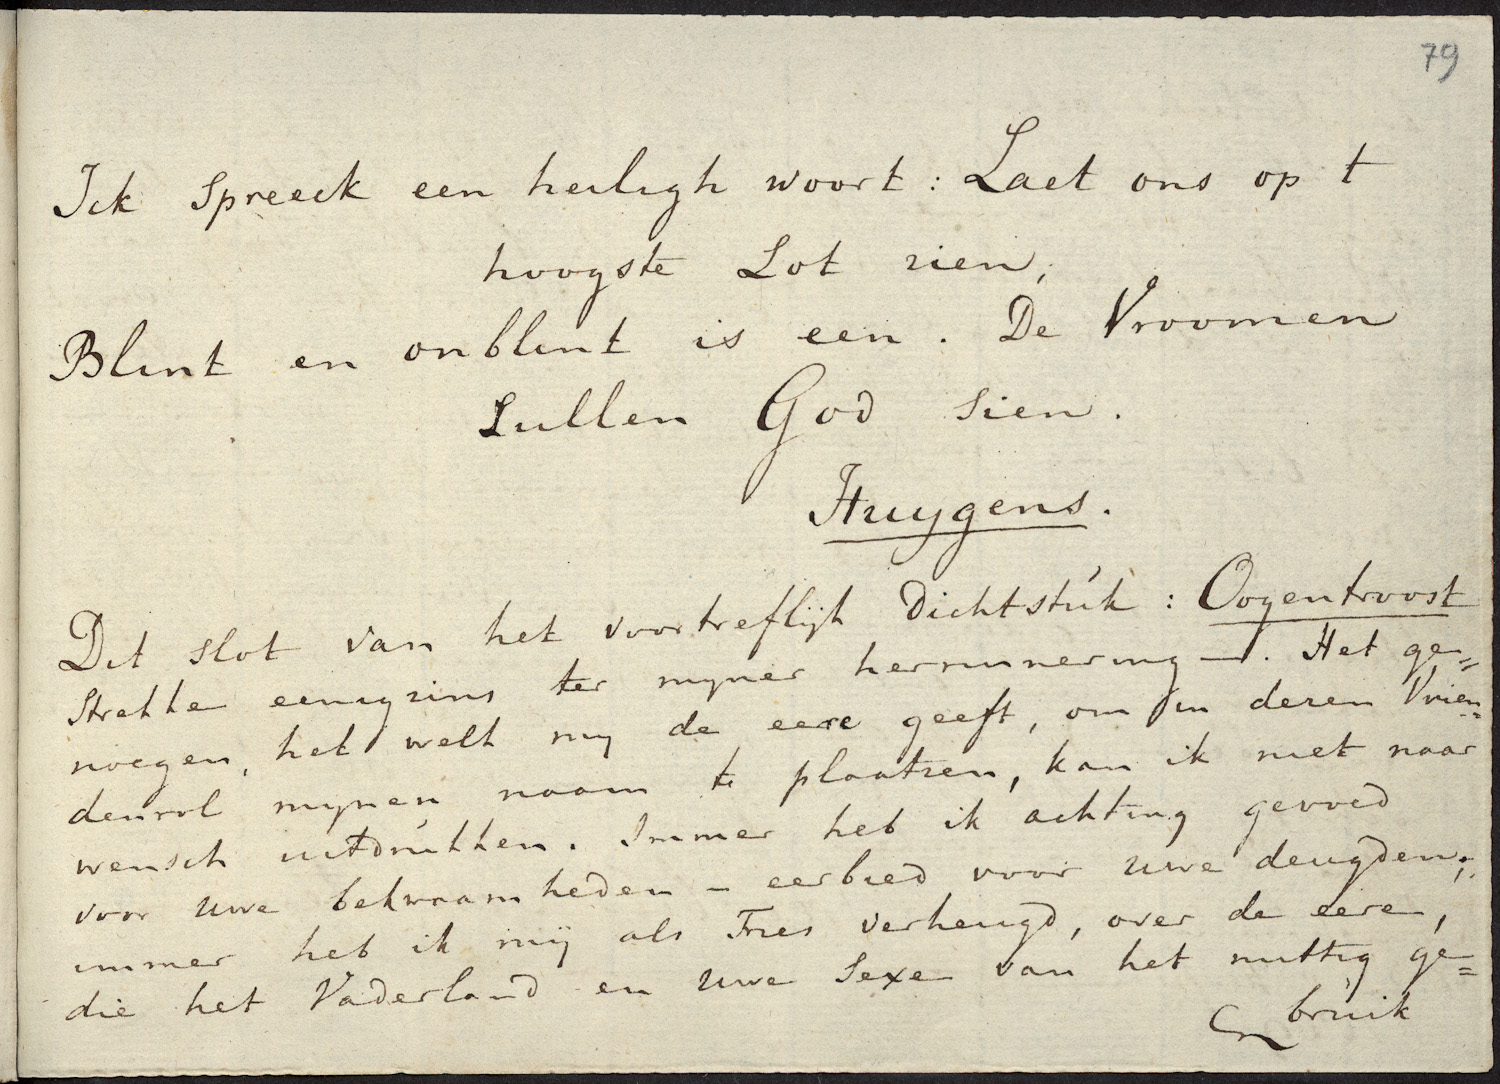 79
Ick spreeck een heiligh woort : Laet ons op t
hoogste Lot zien,
Blint en onblint is een . De Vroomen
Sullen God sien .
Huygens .
Dit slot van het voortreflijk Dichtstuk : Oogentroost
strekke eenigzins ter mijner herrinnering — . Het ge=
noegen, het welk mij de eere geeft, om in deren Vrien=
denrol mijnen naam te plaatzen, kan ik niet naar
wensch uitdrukken . Immer heb ik achting gevoed
voor uwe bekwaamheden – eerbied voor uwe deugden ;
immer heb ik mij als Fries verheugd, over de eere,
die het Vaderland en uwe Sexe van het nuttig ge=
bruik